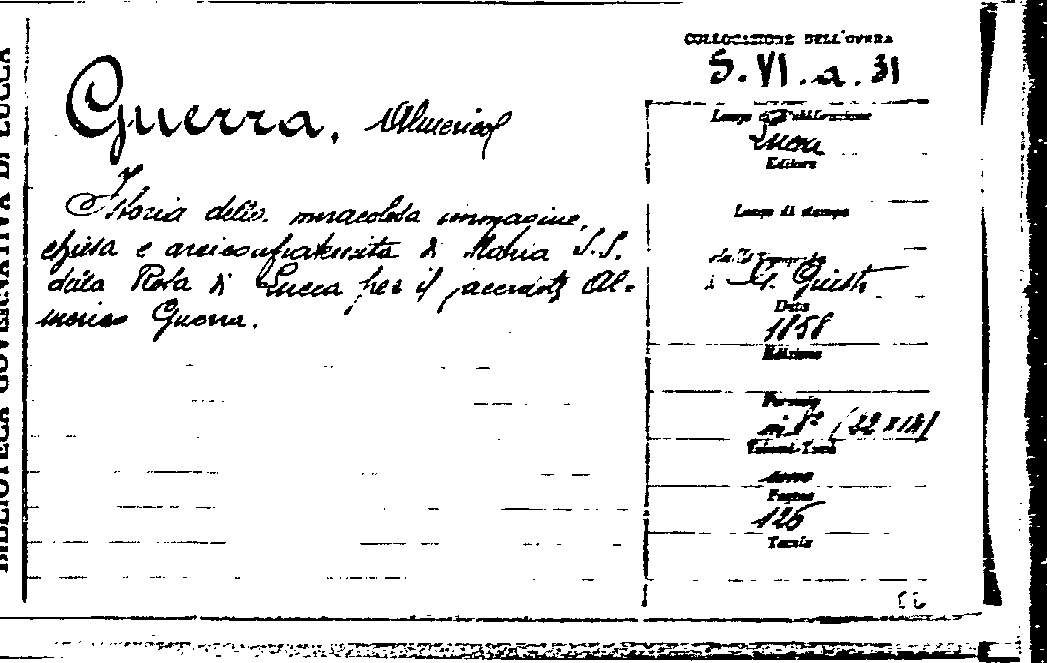 BIBLIOTECA GOVERNATIVA DI LUCCA
COLLOCAZIONE DELL'OPERA
S. VI. a. 31
Guerra, Almerico
Istoria della miracolosa immagine,
chiesa e arciconfraternita di Maria S.S.
della Rosa di Lucca per il sacerdote Al-
merico Guerra.
Luogo di Pubblicazione
Lucca
Editore
Luogo di stampa
G. Giusti
Data
1858
Edizione
Formato
in 8° (22 x 14)
Volumi-Tomi
uno
Pagine
126
Tavole